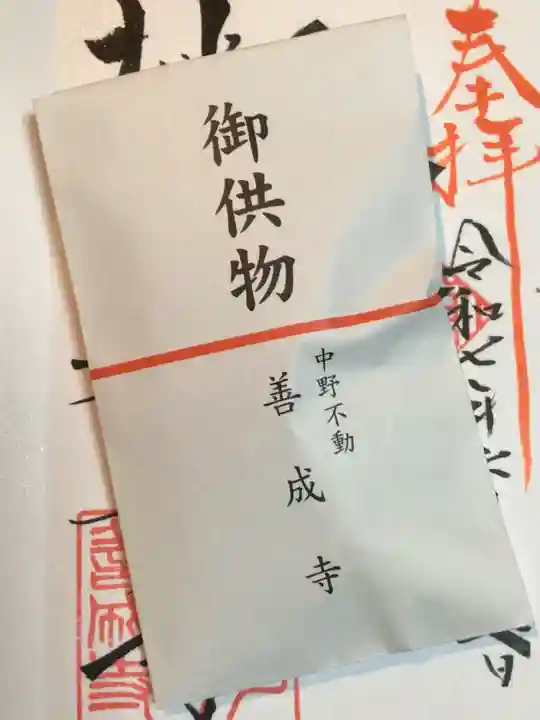 奉拝
令和七年六
日
御供物
中野不動
善成寺